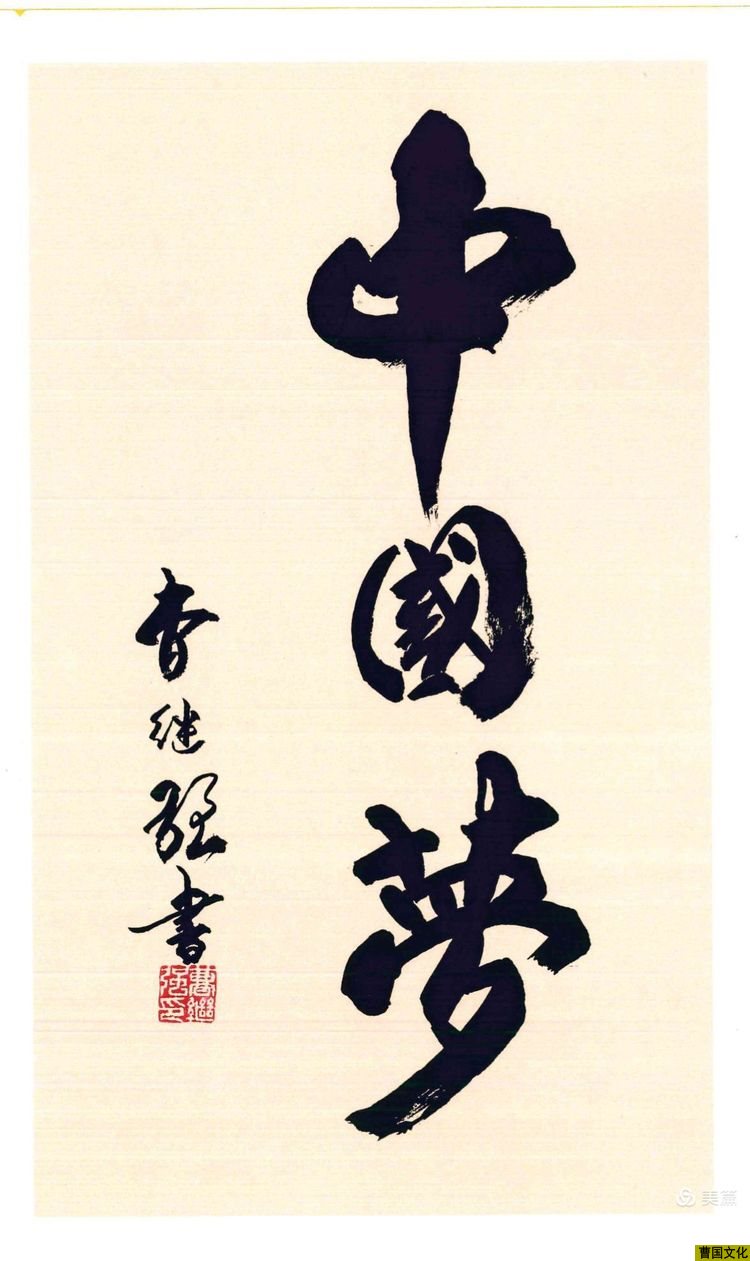 中國夢
曹继强书
曹繼强印
美篇
曹国文化